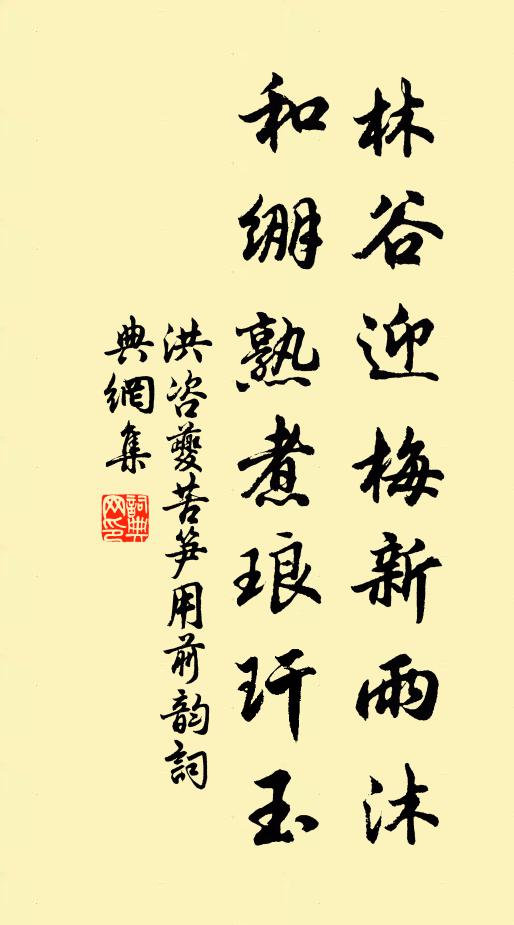 林谷迎梅新雨沐
和绷熟煮琅玕玉
洪咨夔苦笋用前韵詞
典網集
詞典網印